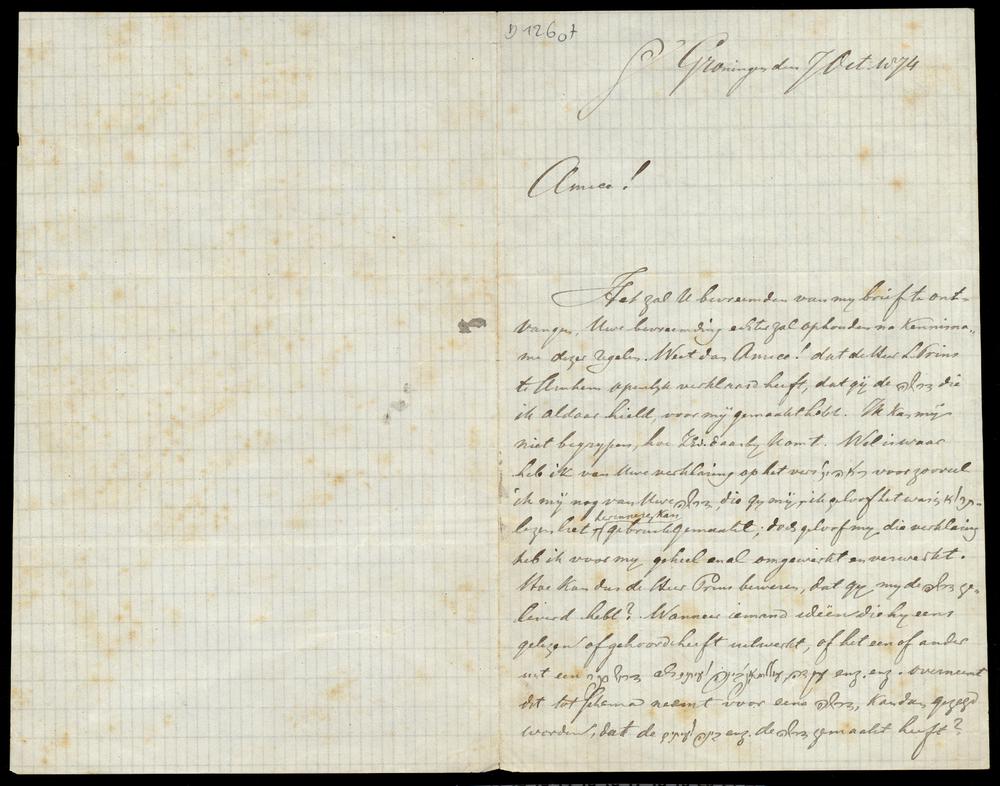 D 1260t
Groningen den 7 Oct. 1874
Amice!
Het zal U bevreemden van my brief te ont-
vangen, Uwe bevreemding echter zal ophouden na kennisna-
me dezer regelen. Weet dan Amice! dat de Heer L. Prins
te Arnhem openlyk verklaard heeft, dat gij de דרשה die
ik aldaar hield, voor mij gemaakt hebt. Ik kan mij
niet begrypen, hoe ZEd. daarby komt. Wel is waar
heb ik van Uwe verklaring op het vers voor zooveel
ik mij nog van Uwe דרשה, die gy mij, ik geloof het was
lezen liet herinneren kan gebruik gemaakt; doch geloof my, die verklaring
heb ik voor my geheel en al omgewerkt en verwerkt.
Hoe kan dus de Heer Prins beweren, dat gy my de דרשה ge-
leverd hebt? Wanneer iemand idëen die hy eens
gelezen of gehoord heeft uitwerkt, of het een of ander
uit een enz. enz. overneemt
dit tot schema neemt voor eene דרשה, kan dan gezegd
worden, dat de enz. de דרשה gemaakt heeft?